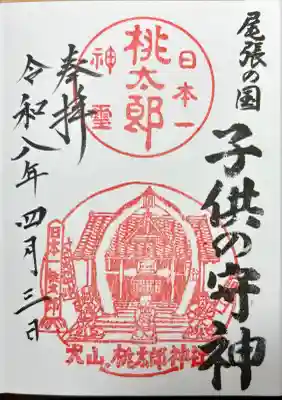 尾張の国
子供の守神
日本一
桃太郎
神霊
奉拝
令和八年 四月三日
犬山・桃太郎神社